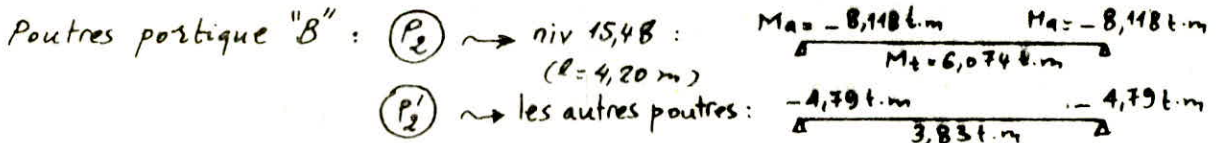 Poutres portique "B" : P2 ⤳ niv 15,48 : Ma = - 8,118 t.m Ma = - 8,118 t.m
(l = 4,20 m) Mt = 6,074 t.m
P'2 ⤳ les autres poutres : - 4,79 t.m - 4,79 t.m
3,83 t.m